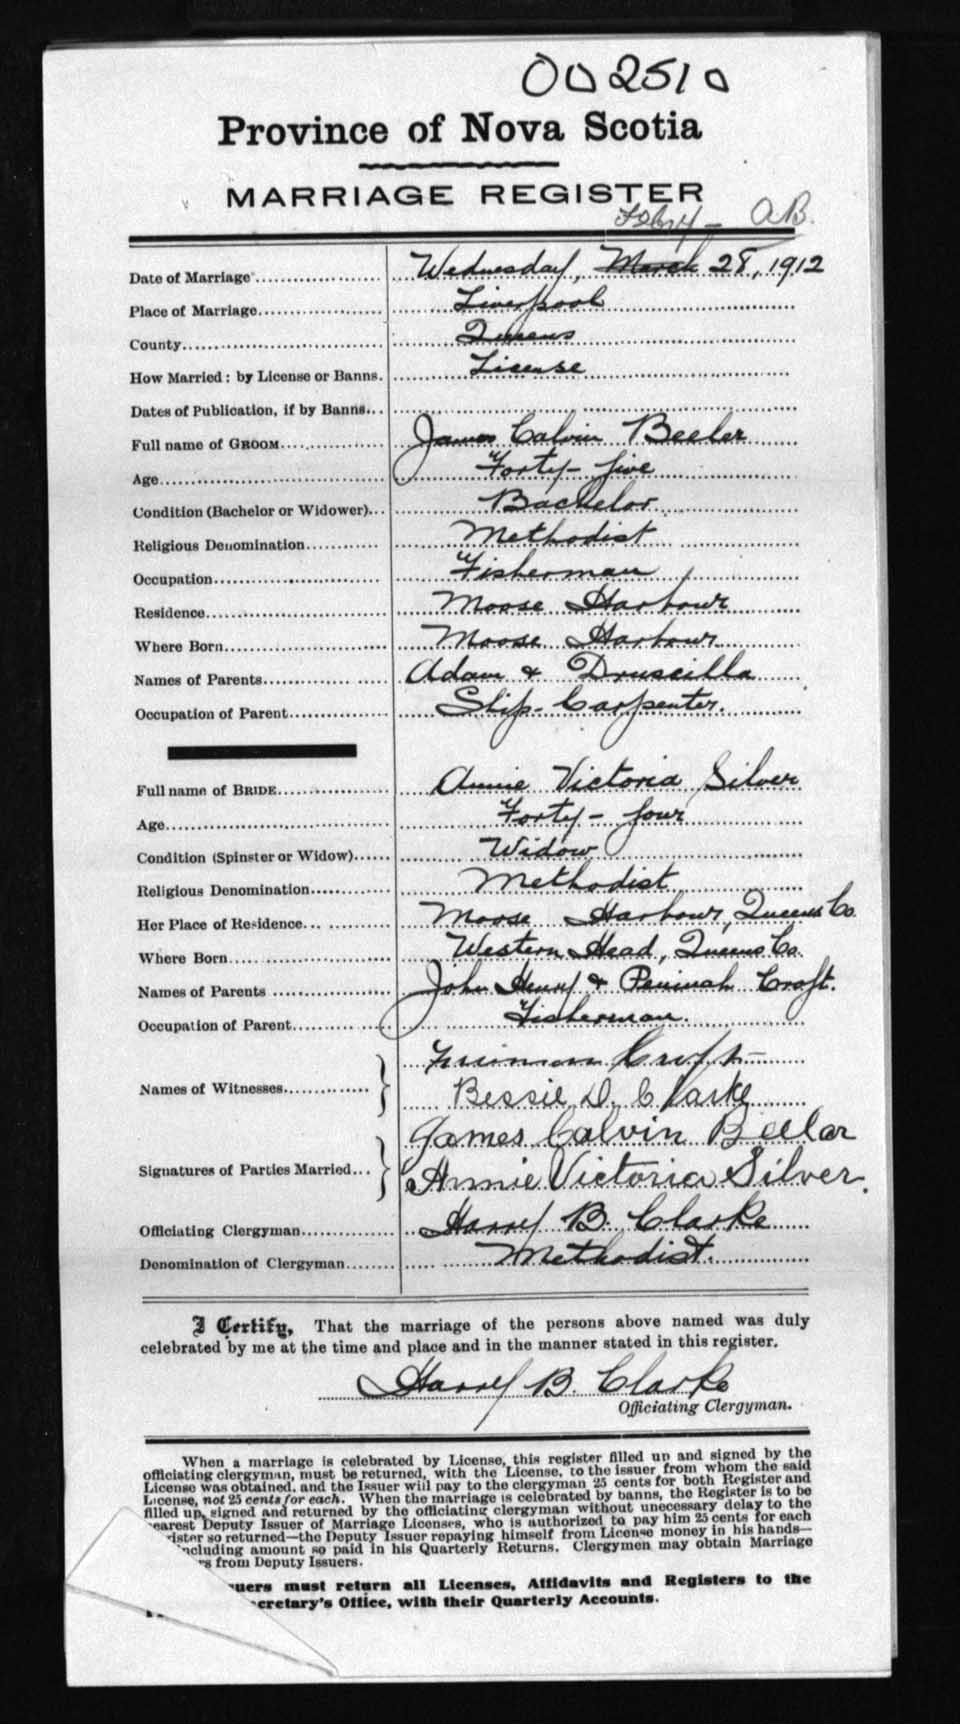 002510
Province of Nova Scotia
MARRIAGE REGISTER
Feb'y - A.B.
Date of Marriage Wednesday, March 28, 1912
Place of Marriage Liverpool
County Queens
How Married: by License or Banns. License
Dates of Publication, if by Banns
Full name of GROOM James Calvin Beeler
Age Forty-five
Condition (Bachelor or Widower) Bachelor
Religious Denomination Methodist
Occupation Fisherman
Residence Moose Harbour
Where Born Moose Harbour
Names of Parents Adam & Druscilla
Occupation of Parent Ship-Carpenter.
Full name of BRIDE Annie Victoria Silver
Age Forty-four
Condition (Spinster or Widow) Widow
Religious Denomination Methodist
Her Place of Residence Moose Harbour, Queens Co.
Where Born Western Head, Queens Co.
Names of Parents John Henry & Peninah Croft.
Occupation of Parent Fisherman.
Croft
Names of Witnesses Bessie D. Clarke
James Calvin Beelar
Signatures of Parties Married Annie Victoria Silver.
Officiating Clergyman Harry B. Clarke
Denomination of Clergyman Methodist.
I Certify, That the marriage of the persons above named was duly
celebrated by me at the time and place and in the manner stated in this register.
Harry B. Clarke
Officiating Clergyman.
When a marriage is celebrated by License, this register filled up and signed by the
officiating clergyman, must be returned, with the License, to the issuer from whom the said
License was obtained, and the Issuer will pay to the clergyman 25 cents for both Register and
License, not 25 cents for each. When the marriage is celebrated by banns, the Register is to be
filled up, signed and returned by the officiating clergyman without unecessary delay to the
earest Deputy Issuer of Marriage Licenses, who is authorized to pay him 25 cents for each
ister so returned—the Deputy Issuer repaying himself from License money in his hands—
ncluding amount so paid in his Quarterly Returns. Clergymen may obtain Marriage
rs from Deputy Issuers.
uers must return all Licenses, Affidavits and Registers to the
ecretary's Office, with their Quarterly Accounts.